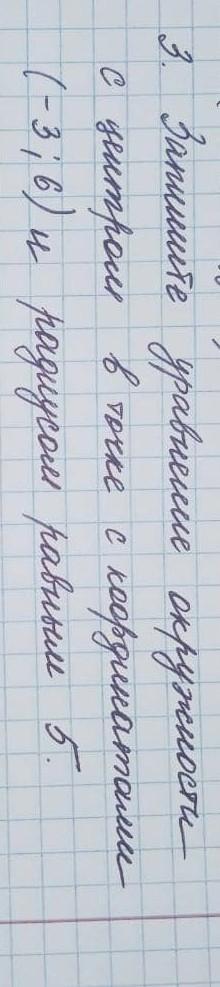 3. Запишите уравнение окружности
с центром в точке с координатами
(-3; 6) и радиусом равным 5.